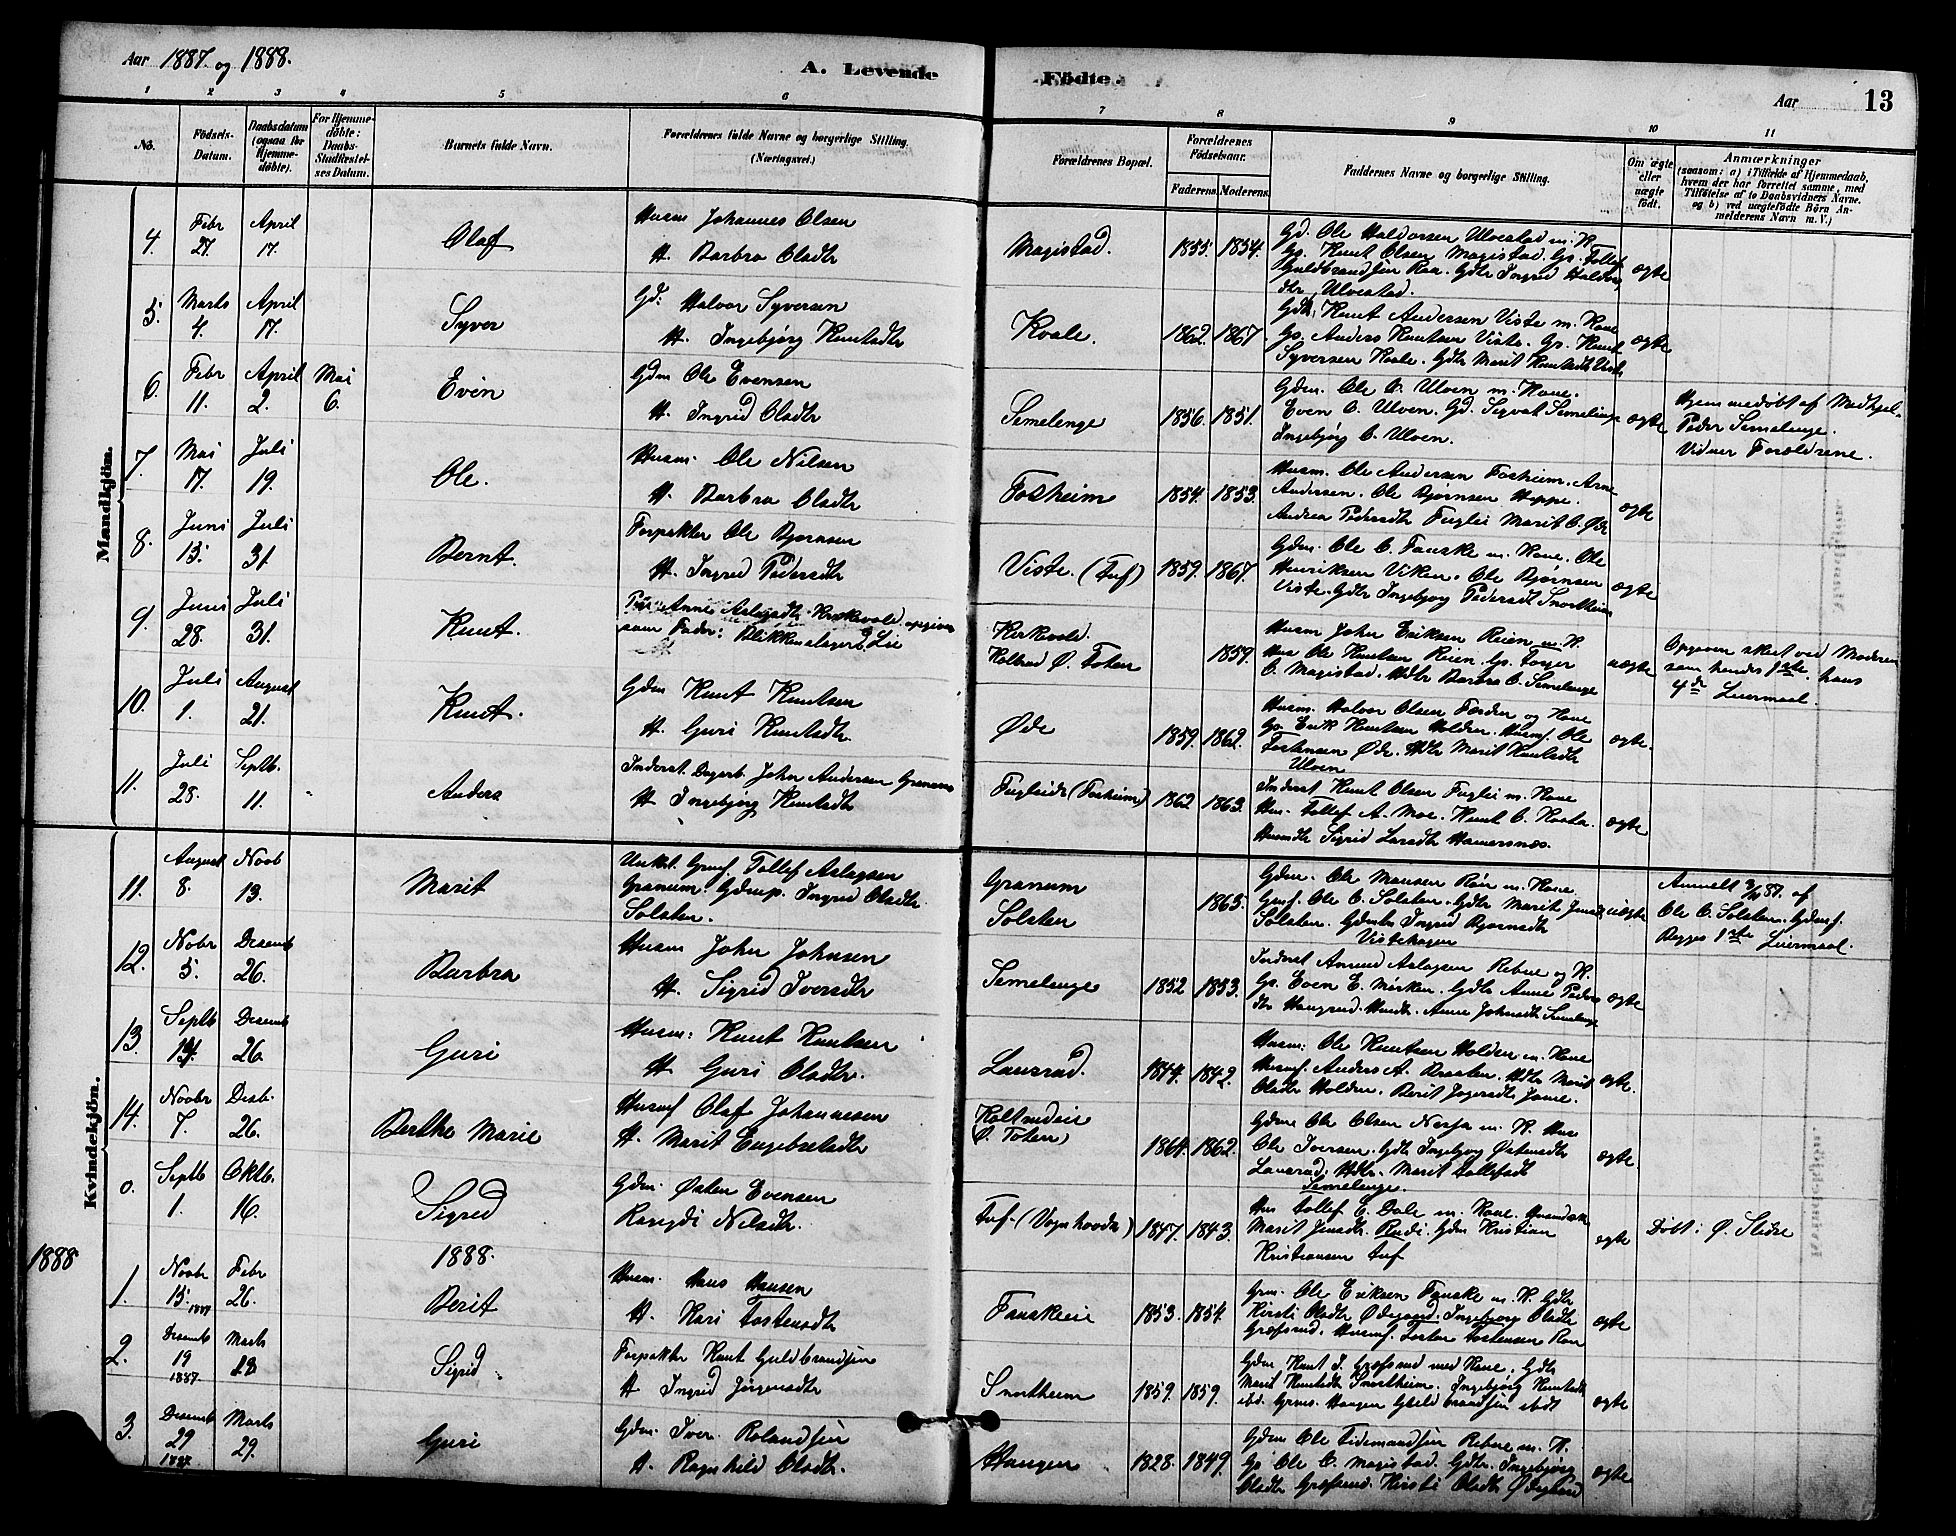 Aar 1887 og 1888.
A. Levende Födte.
Aar 13
1 2 3 4 5 6 7 8 9 10 11
No.
Födsels-Datum.
Daabsdatum (ogsaa for Hjemme-döbte).
For Hjemme-döbte: Daabs-Stadfæstel-ses Datum.
Barnets fulde Navn.
Forældrenes fulde Navne og borgerlige Stilling. (Næringsvei.)
Forældrenes Bopæl.
Forældrenes Födselsaar.
Faderens. Moderens.
Faddernes Navne og borgerlige Stilling.
Om ægte eller uægte födt.
Anmærkninger
(saasom: a) i Tilfælde af Hjemmedaab,
hvem der har forrettet samme, med
Tilföielse af to Daabsvidners Navne.
og b) ved uægtefödte Börn An-
melderens Navn m. V.)
Mandkjön.
4. Febr 27. April 17. Olaf
Husm Johannes Olsen
H. Barbra Olsdtr
Magistad. 1855. 1854.
Gd. Ole Haldorsen Ulvestad m. K.
Gs. Knut Olsen Magistad. Gs. Tollef
Guldbrandsen Roa. Gdtr Ingrid Haldors
dtr Ulvestad.
ægte
5. Marts 4. April 17. Syver
Gd: Halvor Syversen
H. Ingebjørg Knutsdtr
Kvale. 1862. 1867.
Gdb. Knut Andersen Viste m. Kone
Gs. Anders Knutsen Viste. Gs. Knut
Syversen Kvale. Gdtr Marit Knutsdtr Viste
ægte
6. Febr 11. April 2. Mai 6. Even
Gdm Ole Evensen
H. Ingrid Olsdtr
Semelenge 1856. 1851.
Gdm. Ole O. Ulven m. Kone.
Even O. Ulven. Gd. Sigvat Semelenge
Ingebjørg O. Ulven.
ægte
Hjemmedøbt af Medhjel.
Peder Semelenge.
Vidner Forældrene.
7. Mai 17. Juli 19. Ole.
Husm. Ole Nilsen
H. Barbra Olsdtr
Fosheim 1854. 1853.
Husm. Ole Andersen Fosheim. Arne
Andersen. Ole Bjørnsen Hippe.
Andrea Pedersdtr Fuglei Marit O. Øde
ægte
8. Juni 15. Juli 31 Bernt.
Forpakter Ole Bjørnsen
H. Ingrid Pedersdtr
Viste. (Tuf) 1859. 1867.
Gdm. Ole O. Fanske m. Kone. Ole
Henriksen Viken. Ole Bjørnsen
Viste. Gdtr Ingebjørg Pedersdt Snortheim
ægte
9. Juni 28. Juli 31. Knut.
Anne Aslagsdtr Kirkevold opgiver
som Fader: Blikkenslager Lie
Kirkvold.
Ø. Toten 1859.
Husm John Eriksen Reien m. K.
Hus Ole Knutsen Reien. Gs. Torger
O. Magistad. Hdtr Barbra O. Semelenge
uægte
Opgaven skeet ved Moderen
som hendes 1ste. hans
4de Leiermaal.
10. Juli 1. August 21. Knut.
Gdm Knut Knutsen
H. Guri Knutsdtr.
Øde 1859. 1862.
Husm. Halvor Olsen Færden og Kone
Gs. Erik Knutsen Holden. Husmf. Ole
Tostensen Øde. Hdtr Marit Knutsdtr
Ulven
ægte.
11. Juli 28. Septb. 11. Anders
Inderst. Dagarb. John Andersen Granum
H. Ingebjørg Knutsdtr
Fugleide (Fosheim) 1862 1863.
Inderst Knut Olsen Fuglei m. Kone
Hus. Tollef A. Moe. Knut O.
Husmdtr Sigrid Larsdtr Hamersnæs.
ægte
Kvindekjön.
11. August 8. Novb 13. Marit
Unkel. Gmf. Tollef Aslagsen
Granum. Gdmp. Ingrid Olsdtr.
Solsten.
Granum
Solsten 1865.
Gdm. Ole Monsen Røn m. Kone.
Gmf. Ole O. Solsten. Gdtr Marit Jensd
Solsten. Gdmdtr Ingrid Bjørnsdtr
Vistehagen
uægte
Anmelt 87. af
Ole O. Solsten. Gdmf.
Begges 1ste Leiermaal.
12. Novbr 5. Desemb 26. Barbra
Husm John Johnsen
H. Sigrid Iversdtr
Semelenge 1852 1853.
Inderst Amund Aslagsen Rebne og K.
Gs. Even E. Mørken. Gdtr Anne Peders
dtr Haugrud. Husdtr. Anne Johnsdt Semelenge
ægte
13. Septb Desemb 26. Guri
Husm: Knut Knutsen
H. Guri Olsdtr.
Lausrud. 1844. 1842.
Husm: Ole Knutsen Holden m. Kone
Husmf. Anders A. Hdtr Marit
Olsdtr Holden. Berit
ægte.
14. Novbr 7. Desb. 26. Berthe Marie
Husmf Olaf Johannesen
H. Marit Engebretsdtr
Ø. Toten) 1864. 1862.
Gdm Ole Olsen Nesja m. K. Hus
Ole Iversen. Gdtr Ingebjørg Østensdt
Lausrud. Hdtr. Marit Tollefsdt
Semelenge.
ægte
0. Septb 1. Oktb. 16. Sigrid
Gdm. Østen Evensen
Rangdi Nilsdtr.
Tuf. (Vognhovda) 1847. 1843.
Hus Tollef E. Dale m. Kone.
Marit Jensdtr. Rudi. Gdm Kristian
Kristiansen Tuf
ægte
Døbt i Ø. Slidre
1888
1888.
1. Novbr 15. 1887 Febr 26. Berit
Husm. Hans Hansen
H. Kari Tostensdtr
Fanskeie 1853. 1854.
Gm. Ole Eriksen Fanske m. K. Gdtr
Kirsti Olsdtr Ødegaard. Ingebjørg Olsdtr
Grøfsrud. Husmf. Tosten Tostensen Roa
ægte
2. Desemb 19 1887. Marts Sigrid
Forpakter Knut Guldbrandsen
H Ingrid Jørgensdtr
Snortheim 1859. 1859.
Gdm Knut I. Grøfsrud med Kone. Gdtr
Marit Knutsdtr Snortheim. Ingebjørg Knutsdt
ibd. Haagen Guldbrandsen ibdt
ægte
3. Desemb 29 1887 Marts 29. Guri
Gdm. Iver Rolandsen
H. Ragnhild Olsdtr.
Haugen 1828. 1849.
Gdm Ole Tidemandsen Rebne m. K.
Gs Ole O. Magistad. Gdtr. Ingebjørg
Olsdtr Grøfsrud. Kirsti Olsdtr Ødegaard
ægte